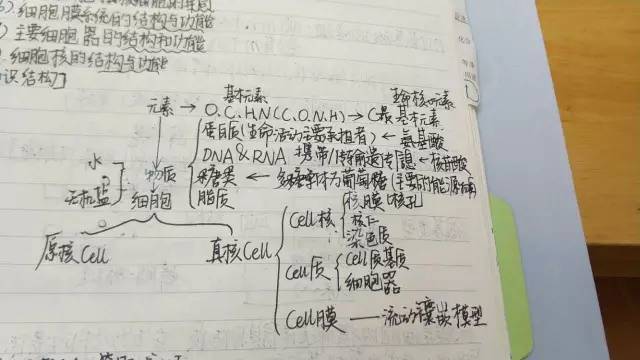 细胞膜系统的结构与功能
主要细胞器的结构和功能
细胞核的结构与功能
识结构]
基本元素
元素 → O.C.H.N(C.O.N.H) → C最基本元素
蛋白质(生命活动主要承担者) ← 氨基酸
DNA&RNA 携带/传输遗传信息 ← 核苷酸
水
无机盐
物质
糖类 ← 多糖单体为葡萄糖(主要的能源
脂质
细胞
原核Cell
真核Cell
Cell核
核膜 核孔
核仁
染色质
Cell质
Cell质基质
细胞器
Cell膜 —— 流动镶嵌模型